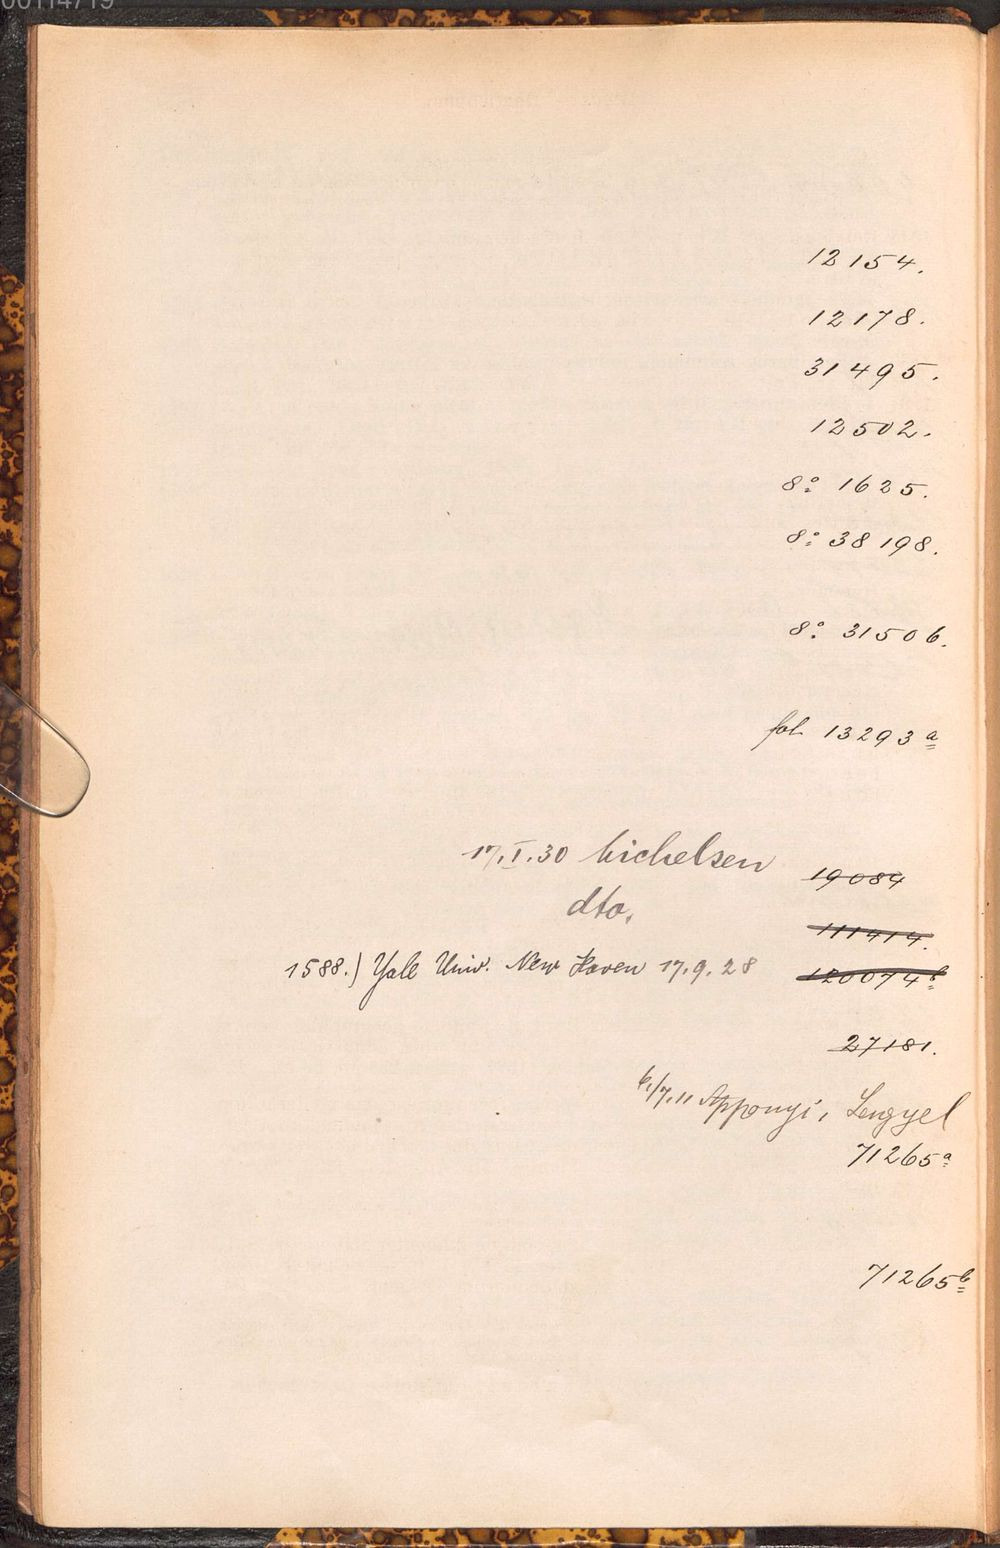 00114719
12154.
12178.
31495.
12502.
8° 1625.
8° 38198.
8° 31506.
fol. 13293 a
17.I.30
19084
dto.
111414.
1588.) Yale Univ. New Haven 17.9.28
120074 b
27181.
6./7.11 Apponyi, Lengyel
71265 a
71265 b